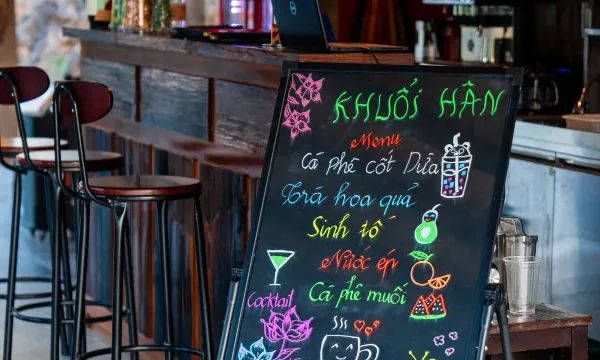 KHUỔI HÂN
Menu
Cà phê cốt Dừa
Trá hoa quả
Sinh tố
Nước ép
Cà phê muối
Cocktail